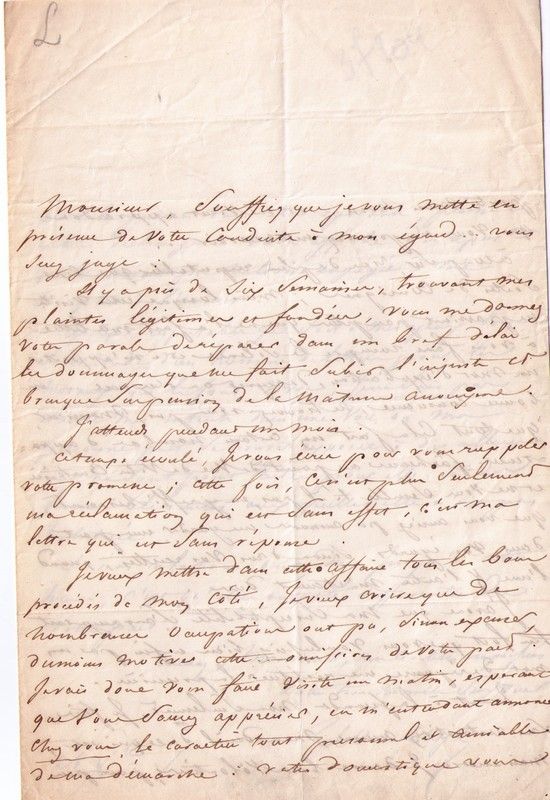 L
Monsieur, Souffrez que je vous mette en
présence de votre Conduite à mon égard. vous
Serez juge :
Il y a près de Six Semaines, trouvant mes
plaintes légitimes et fondées, vous me donnez
votre parole de réparer dans un bref délai
les dommages que me fait Subir l'injuste et
brusque Suspension de la Maison anonyme.
J'attends pendant un mois.
ce temps écoulé, Je vous écris pour vous rappeler
votre promesse ; cette fois, ce n'est plus Seulement
ma réclamation qui est Sans effet, c'est ma
lettre qui est Sans réponse.
Je veux mettre dans cette affaire tous les bons
procédés de mon Côté, Je veux croire que de
nombreuses Occupations ont pu, Sinon excuser,
du moins motiver cette omission de votre part.
Je vais donc vous faire Visite un matin, espérant
que Vous Saurez apprécier, en m'entendant annoncer
Chez vous, le caractère tout personnel et amiable
de ma démarche : votre domestique vous